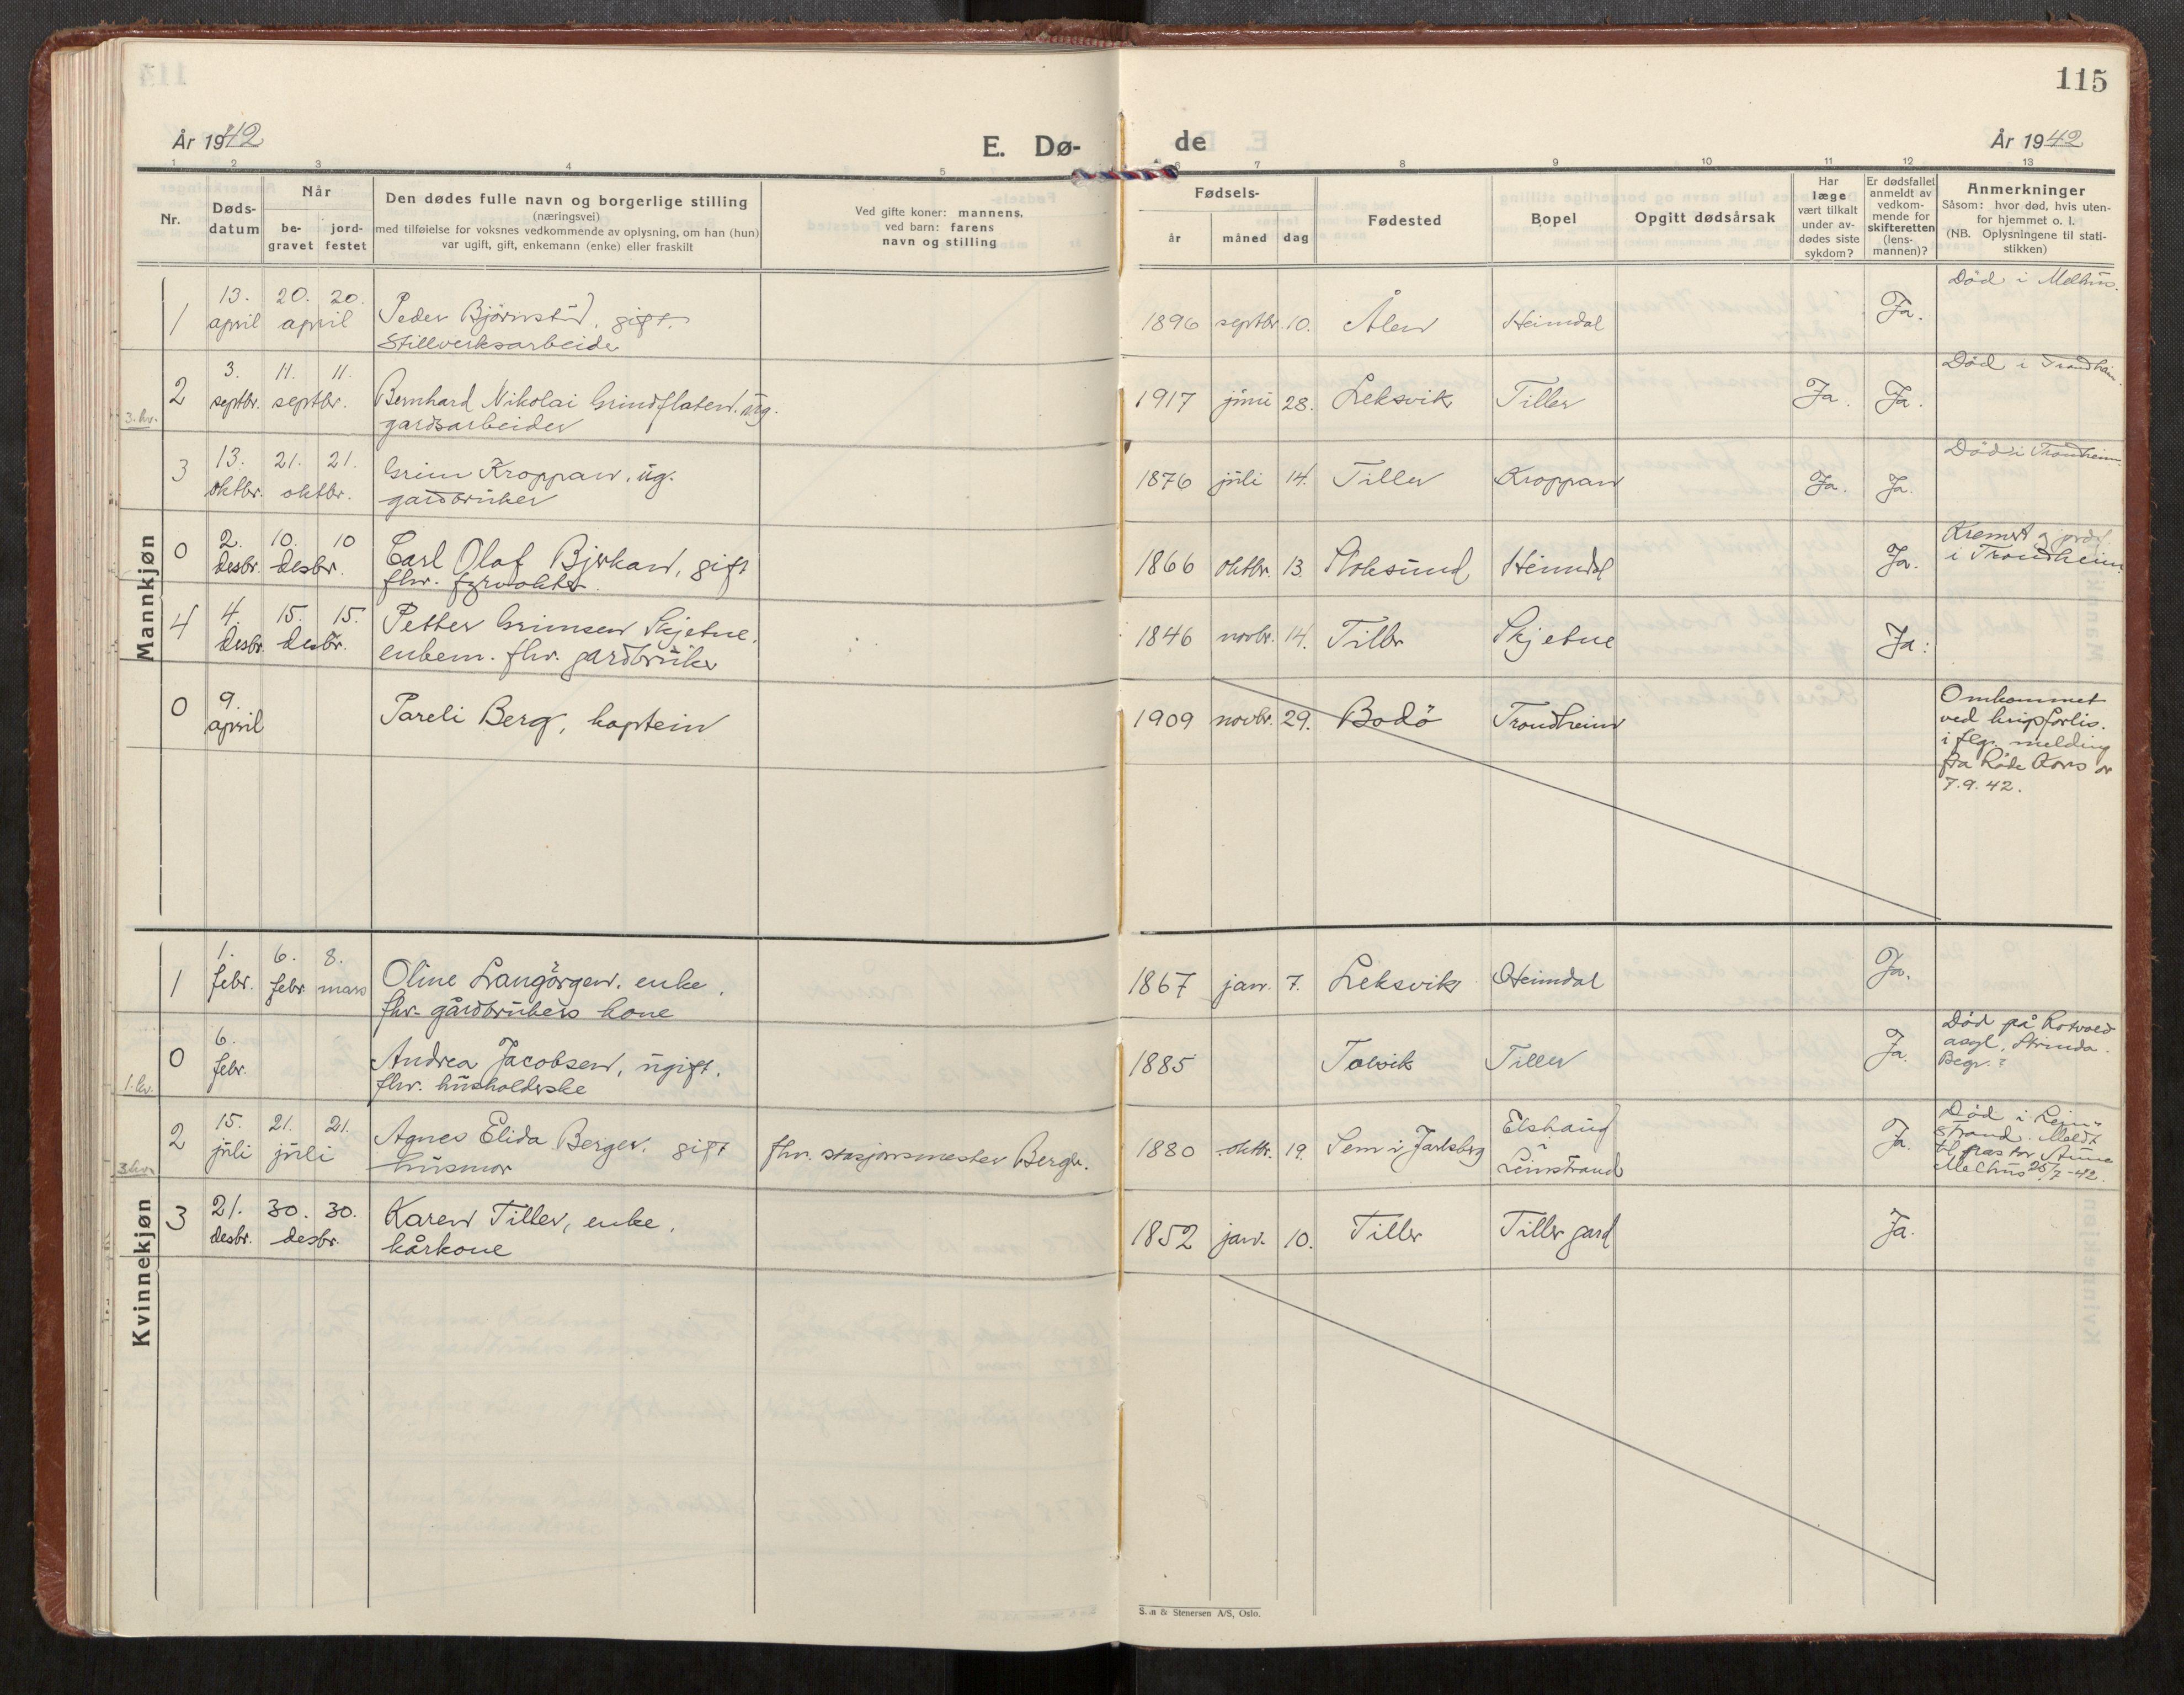 115
År 1942
E. Dø-
de
År 1942
1 2 3 4 5 6 7 8 9 10 11 12 13
Nr.
Døds-
datum
Når
be-
gravet
jord-
festet
Den dødes fulle navn og borgerlige stilling
(næringsvei)
med tilføielse for voksnes vedkommende av oplysning, om han (hun)
var ugift, gift, enkemann (enke) eller fraskilt
Ved gifte koner: mannens,
ved barn: farens
navn og stilling
Fødsels-
år
måned
dag
Fødested
Bopel
Opgitt dødsårsak
Har
læge
vært tilkalt
under av-
dødes siste
sykdom?
Er dødsfallet
anmeldt av
vedkom-
mende for
skifteretten
(lens-
mannen)?
Anmerkninger
Såsom: hvor død, hvis uten-
for hjemmet o. l.
(NB. Oplysningene til stati-
stikken)
Mannkjøn
1 13. april 20. 20. april Peder Björnstad, gift.
Stillverksarbeider
1896 septbr. 10. Ålen Heimdal Ja. Död i Melhus.
3.kv. 2 3. septbr. 11. 11. septbr. Bernhard Nikolai Grindflaten. ug.
gardsarbeider
1917 juni 28. Leksvik Tiller Ja. Ja. Död i Trondheim.
3 13. oktbr. 21. 21. oktbr. Grim Kroppan, ug.
gardbruker
1876 juli 14. Tiller Kroppan Ja. Ja. Död i Trondheim.
0 2. desbr. 10. 10 desbr. Carl Olaf Bjerkan, gift
fhv. fyrvokter.
1866 oktbr. 13. Stoksund Heimdal Ja. Kremert og jordf.
i Trondheim
4 4. desbr. 15. 15. desbr. Petter Grimsen Skjetne.
enkem. fhv. gardbruker
1846 novbr. 14. Tiller Skjetne Ja.
0 9. april Pareli Berg, kaptein
1909 novbr. 29. Bodö Trondheim Omkommet
ved krigsforlis.
i flg. melding
fra Röde Kors av
7.9.42.
Kvinnekjøn
1 1. febr. 6. febr. 8. mars Oline Langörgen. enke.
fhv. gårdbrukers kone
1867 jan. 7. Leksvik Heimdal Ja.
1.kv. 0 6. febr. Andrea Jacobsen, ugift.
fhv. husholderske
1885 Tolvik Tiller Ja. Död på Rotvold
asyl, Strinda.
Begr.?
3.kv. 2 15. juli 21. 21. juli Agnes Elida Berger. gift
husmor
fhv. stasjonsmester Berger.
1880 oktbr. 19. Sem i Jarlsberg Elshaug
i
Leinstrand
Ja. Död i Lein-
strand. Meldt
til pastor
Melhus 25/7-42.
3 21. desbr. 30. 30. desbr. Karen Tiller, enke.
kårkone
1852 jan. 10. Tiller Tiller gard Ja.
S..n & Stenersen A/S, Oslo.